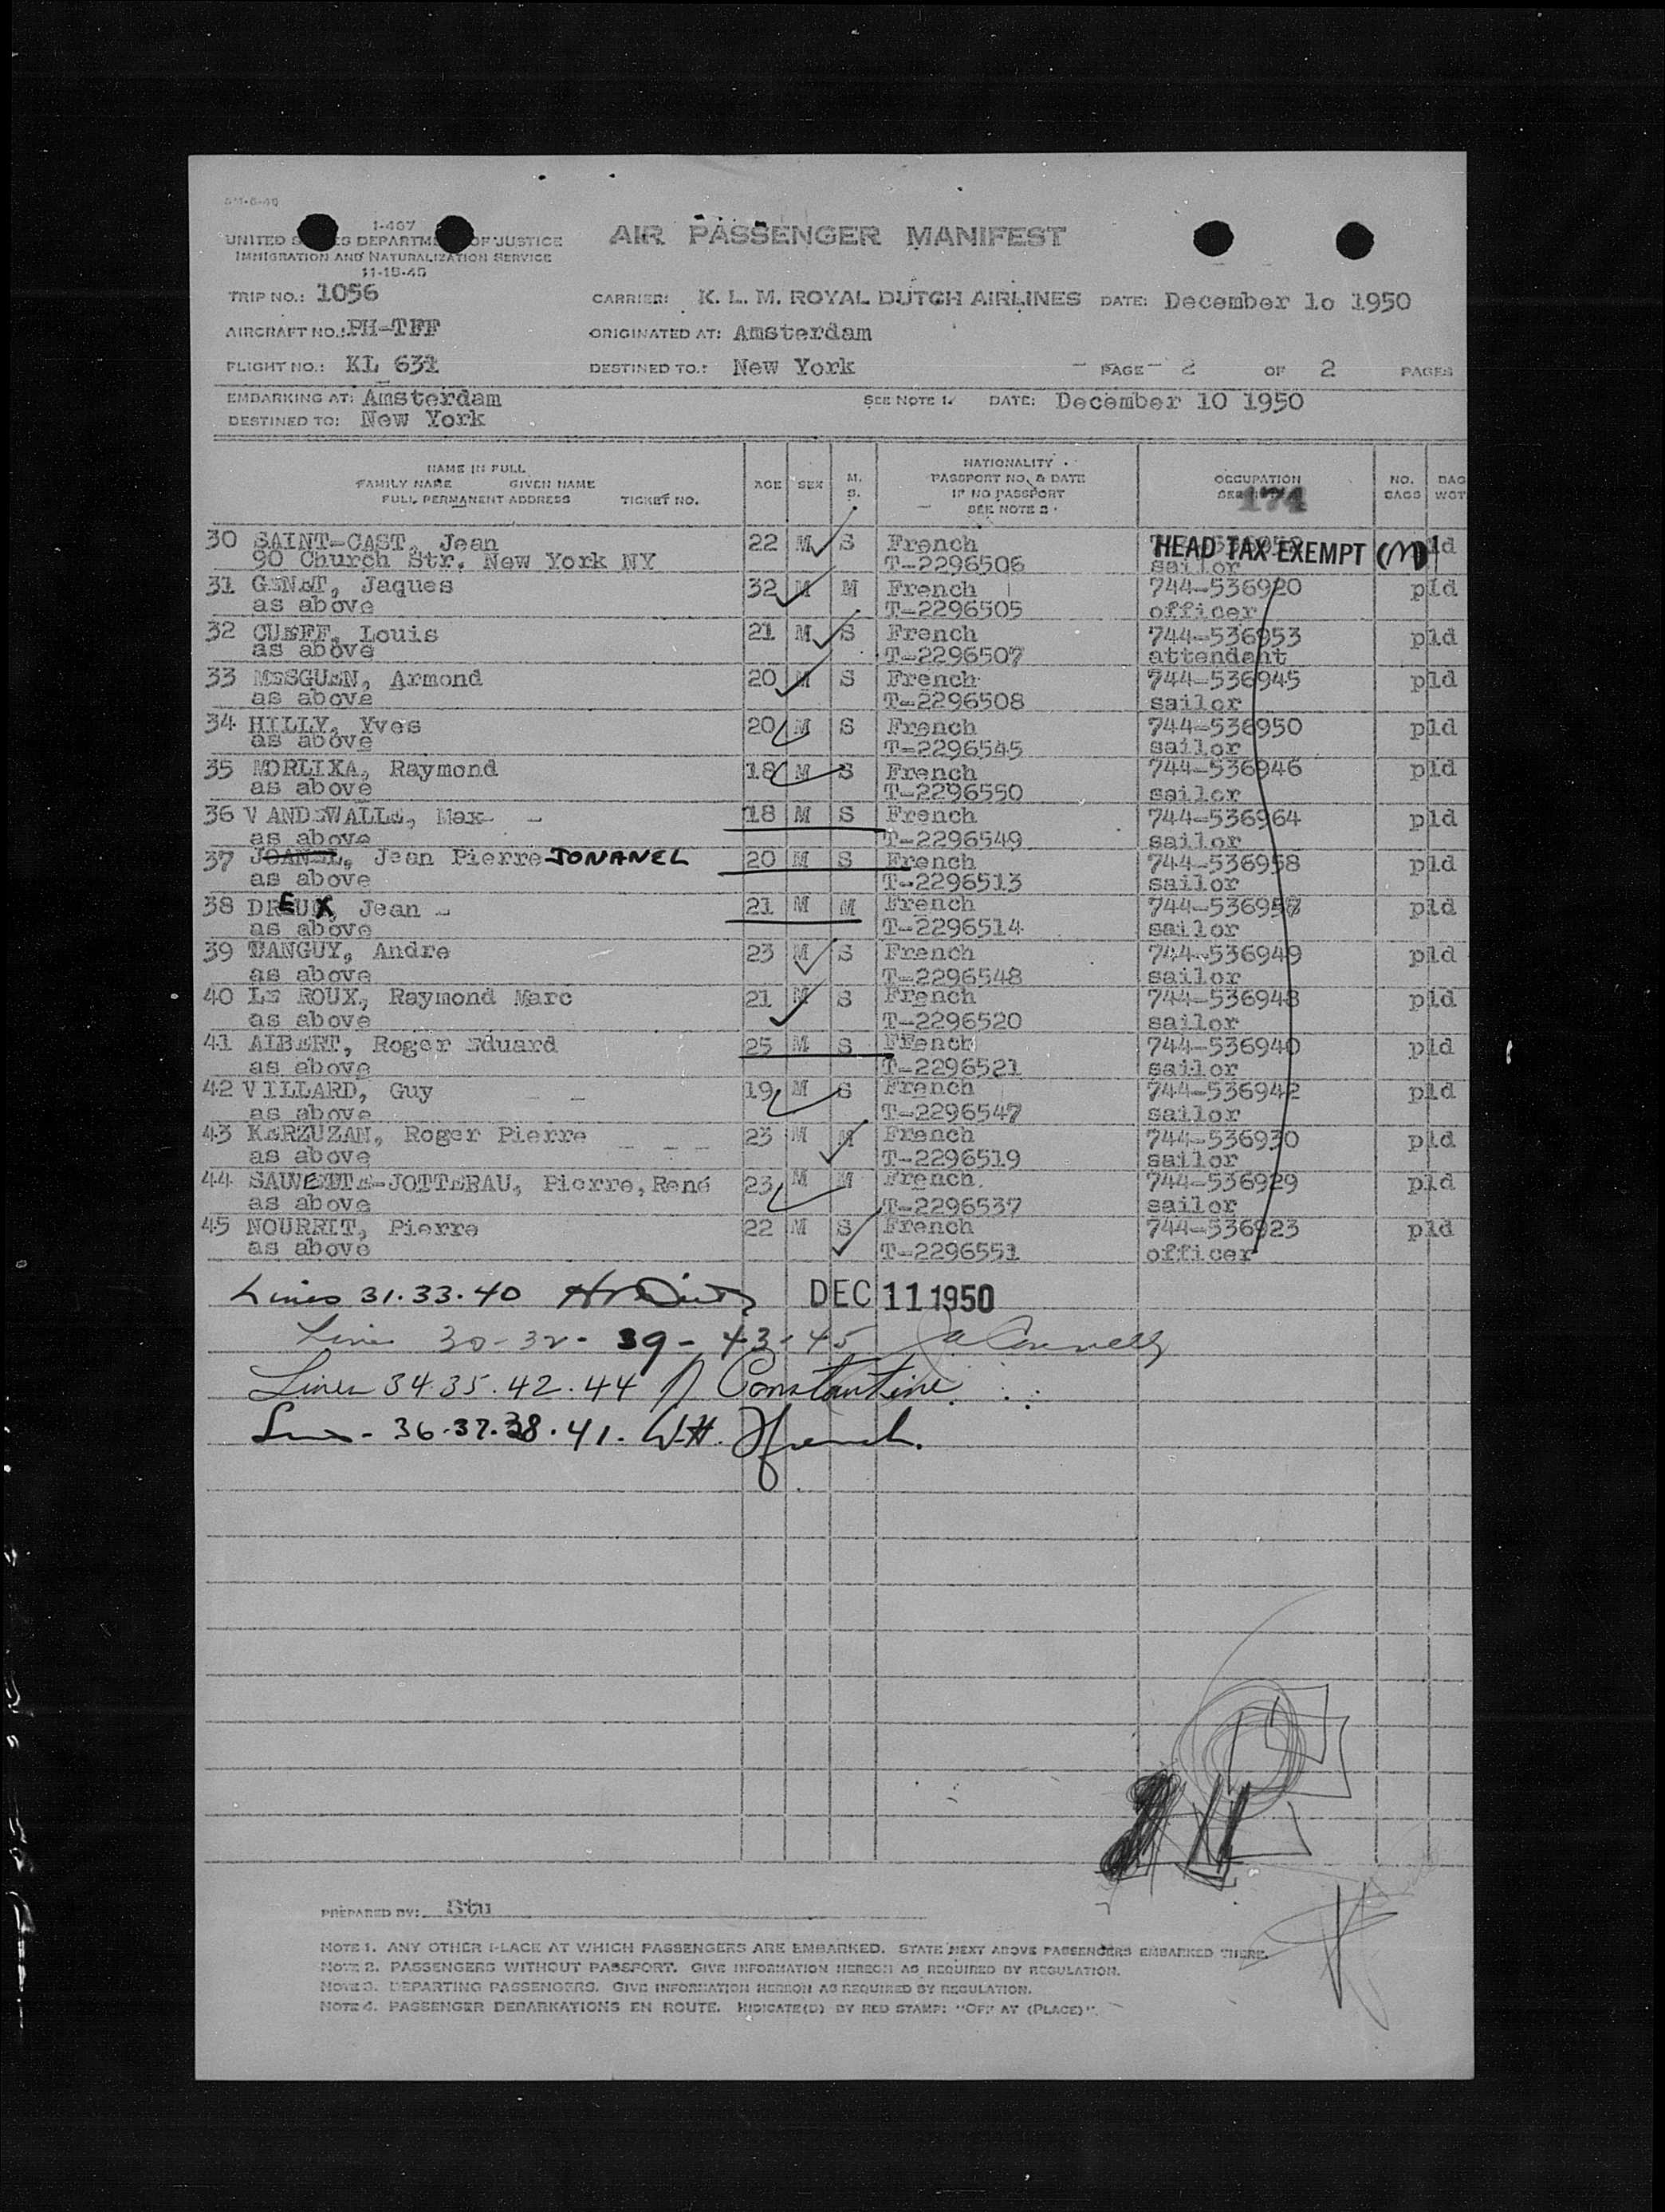 I-467
UNITED STATES DEPARTMENT OF JUSTICE
IMMIGRATION AND NATURALIZATION SERVICE
AIR PASSENGER MANIFEST
TRIP NO.: 1056 CARRIER: K. L. M. ROYAL DUTCH AIRLINES DATE: December 1o 1950
AIRCRAFT NO.: PH-TFF ORIGINATED AT: Amsterdam
FLIGHT NO.: KL 631 DESTINED TO.: New York PAGE 2 OF 2 PAGES
EMBARKING AT: Amsterdam SEE NOTE 1. DATE: December 10 1950
DESTINED TO: New York
NAME IN FULL
FAMILY NAME GIVEN NAME
FULL PERMANENT ADDRESS TICKET NO.
AGE SEX M. S.
NATIONALITY
PASSPORT NO. & DATE
IF NO PASSPORT
SEE NOTE 2
OCCUPATION
174
NO. BAGS BAG WGT
30 SAINT-CAST, Jean 22 M S French HEAD TAX EXEMPT (M)
90 Church Str. New York NY T-2296506 sailor
31 GENET, Jaques 32 M M French 744-536920 pld
as above T-2296505 officer
32 CUEFF, Louis 21 M S French 744-536953 pld
as above T-2296507 attendant
33 MESGUEN, Armond 20 M S French 744-536945 pld
as above T-2296508 sailor
34 HILLY, Yves 20 M S French 744-536950 pld
as above T-2296545 sailor
35 MORLIXA, Raymond 18 M S French 744-536946 pld
as above T-2296550 sailor
36 VANDEWALLE, Max 18 M S French 744-536964 pld
as above T-2296549 sailor
37 JOANEL, Jean Pierre JONANEL 20 M S French 744-536958 pld
as above T-2296513 sailor
38 DREUX, Jean 21 M M French 744-536957 pld
as above T-2296514 sailor
39 TANGUY, Andre 23 M S French 744-536949 pld
as above T-2296548 sailor
40 LE ROUX, Raymond Marc 21 M S French 744-536948 pld
as above T-2296520 sailor
41 ALBERT, Roger Eduard 25 M S French 744-536940 pld
as above T-2296521 sailor
42 VILLARD, Guy 19 M S French 744-536942 pld
as above T-2296547 sailor
43 KERZUZAN, Roger Pierre 23 M M French 744-536930 pld
as above T-2296519 sailor
44 SAUVETTE-JOTTEBAU, Pierre, René 23 M M French 744-536929 pld
as above T-2296537 sailor
45 NOURRIT, Pierre 22 M S French 744-536923 pld
as above T-2296551 officer
Lines 31.33.40 DEC 11 1950
Line 30-32-39-43-45
Lines 34.35.42.44 Constantine
36.37.38.41. W.H. French.
PREPARED BY: Stu
NOTE 1. ANY OTHER PLACE AT WHICH PASSENGERS ARE EMBARKED. STATE NEXT ABOVE PASSENGERS EMBARKED THERE.
NOTE 2. PASSENGERS WITHOUT PASSPORT. GIVE INFORMATION HEREON AS REQUIRED BY REGULATION.
NOTE 3. DEPARTING PASSENGERS. GIVE INFORMATION HEREON AS REQUIRED BY REGULATION.
NOTE 4. PASSENGER DEBARKATIONS EN ROUTE. INDICATE(D) BY RED STAMP: "OFF AT (PLACE)".